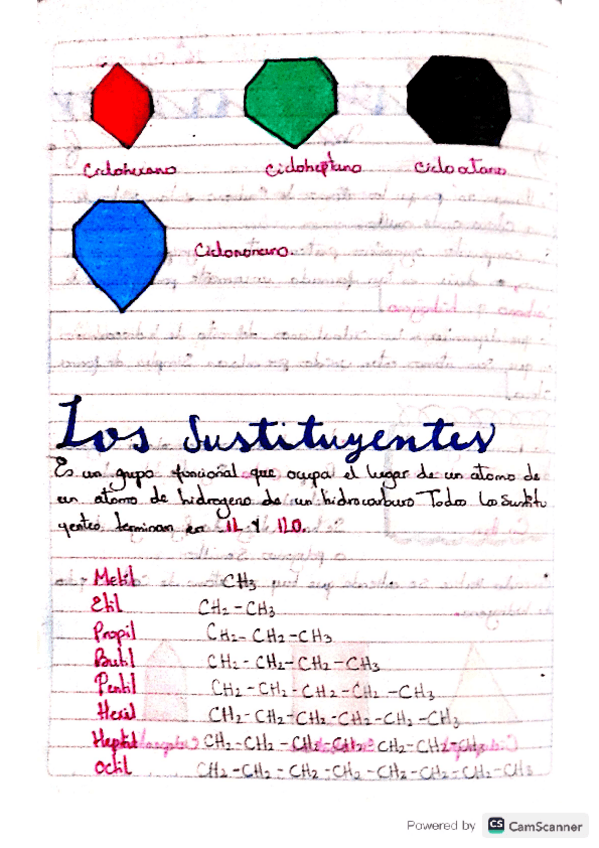 Ciclohexano Cicloheptano Ciclooctano
Ciclononano.
Los Sustituyentes
Es un grupo funcional que ocupa el lugar de un atomo de
un atomo de hidrogeno de un hidrocarburo Todos los sustitu
yentes terminan en IL Y ILO.
Metil CH3
Etil CH2-CH3
Propil CH2-CH2-CH3
Butil CH2-CH2-CH2-CH3
Pentil CH2-CH2-CH2-CH2-CH3
Hexil CH2-CH2-CH2-CH2-CH2-CH3
Heptil CH2-CH2-CH2-CH2-CH2-CH2-CH3
Octil CH2-CH2-CH2-CH2-CH2-CH2-CH2-CH3
Powered by CS CamScanner